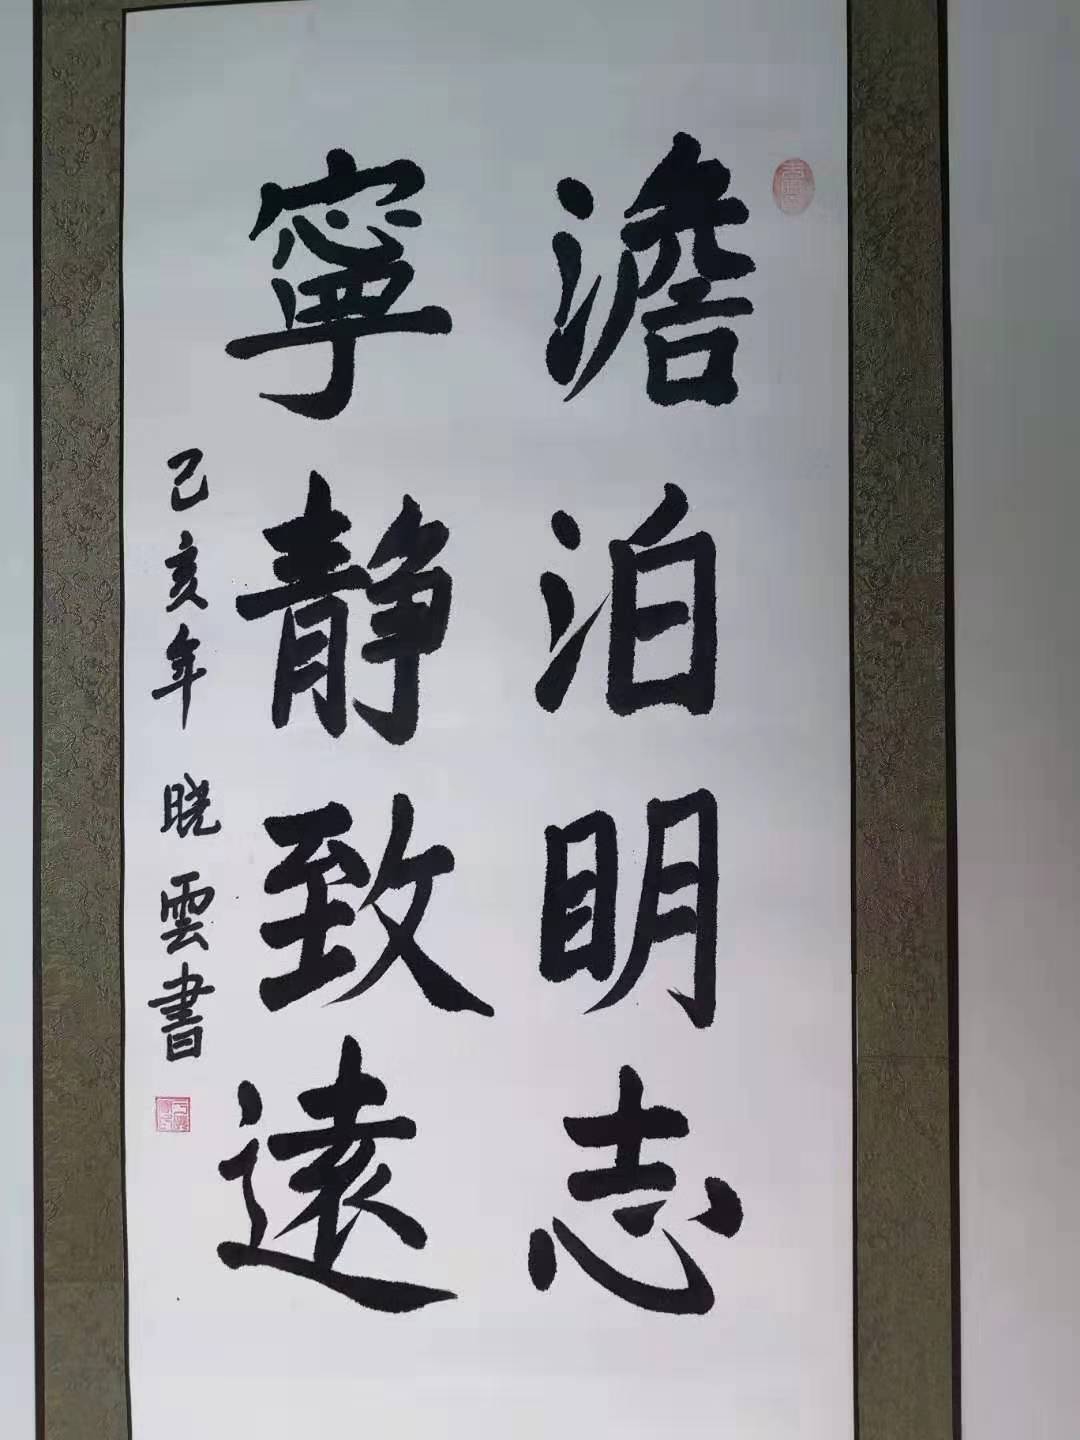 澹泊明志
寧静致遠
己亥年 晓雲書